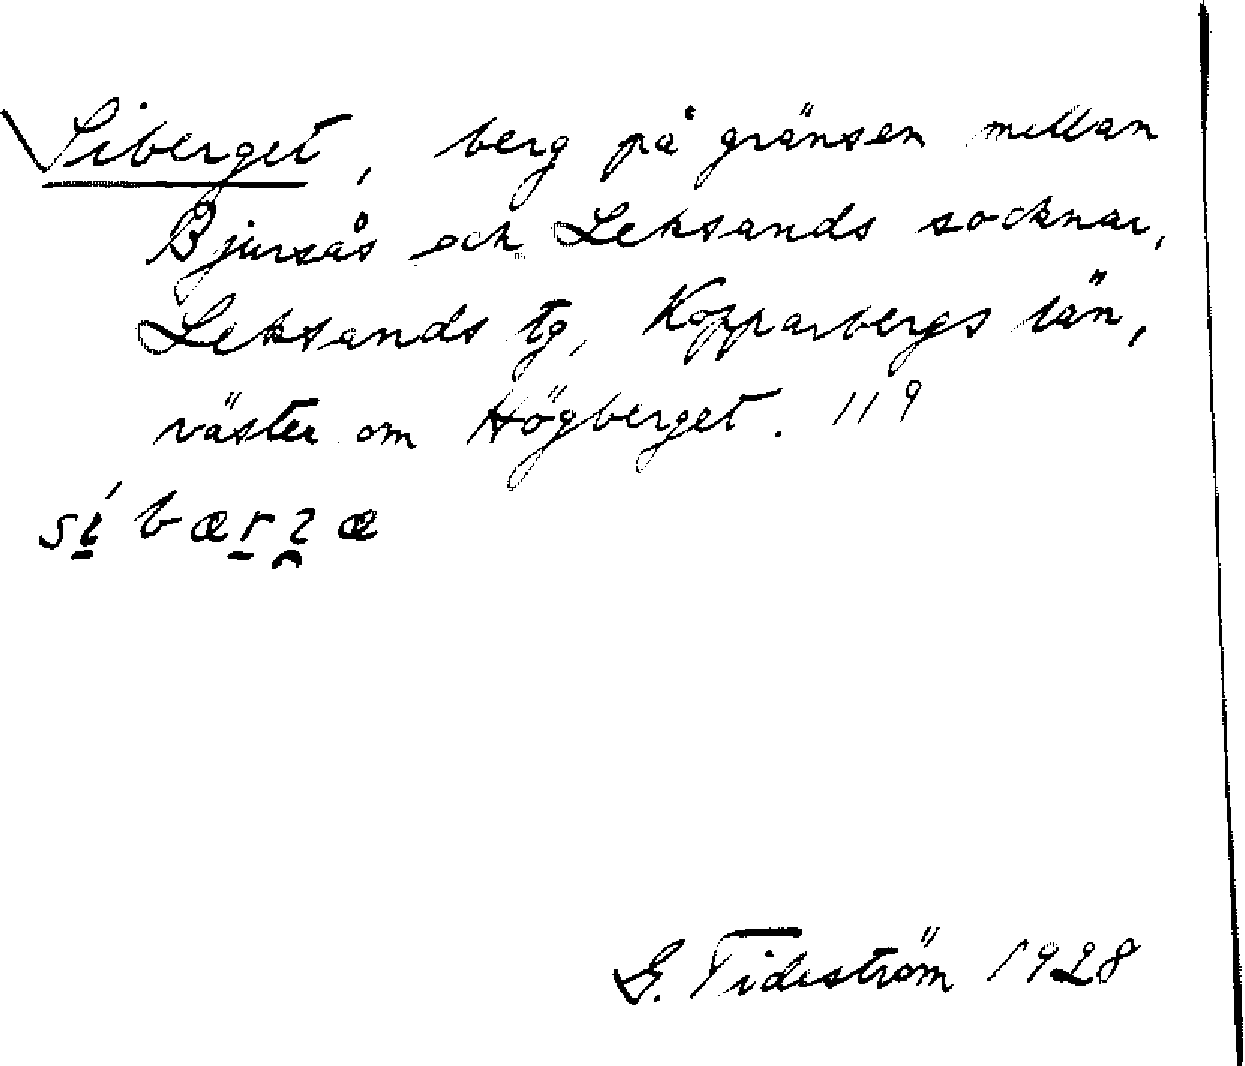 Siberget, berg på gränsen mellan
Bjursås och Leksands socknar,
Leksands tg, Kopparbergs län,
väster om Högberget. 119
sí bærɀæ
G. Tideström 1928